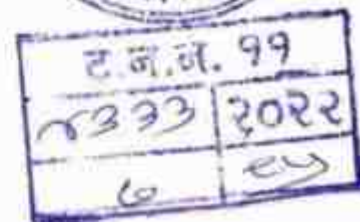 ट.न.न. ११
४३३३ २०२२
७ ८५